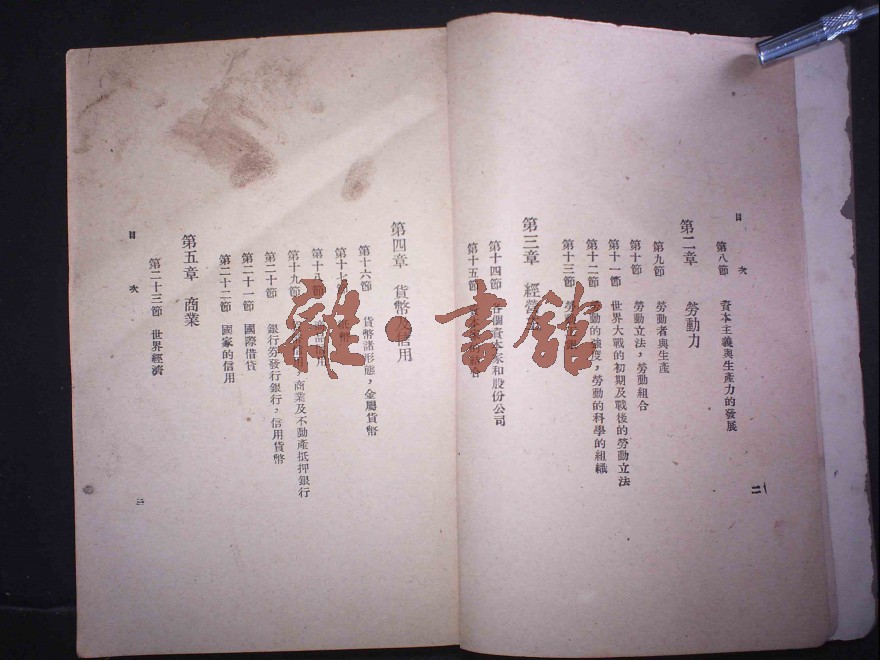 目次
第八節 資本主義與生產力的發展
第二章 勞動力
第九節 勞動者與生產
第十節 勞動立法，勞動組合
第十一節 世界大戰的初期及戰後的勞動立法
第十二節 勞動的強度，勞動的科學的組織
第十三節
第三章 經營
第十四節 各個資本家和股份公司
第十五節
二
第四章 貨幣及信用
第十六節 貨幣諸形態，金屬貨幣
第十七節 紙幣
第十八節
第十九節 商業及不動產抵押銀行
第二十節 銀行券發行銀行，信用貨幣
第二十一節 國際借貸
第二十二節 國家的信用
第五章 商業
第二十三節 世界經濟
目次
三
雜·書館